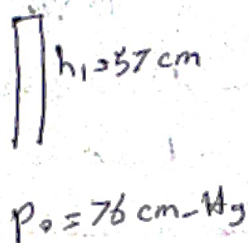 h₁=57 cm
P₀ = 76 cm-Hg